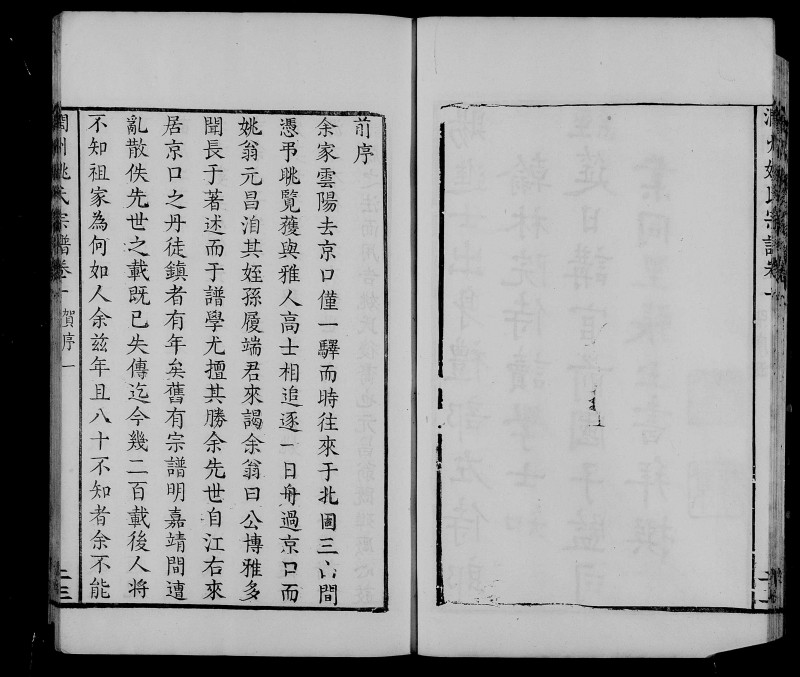 潤州姚氏宗譜卷一
前序
余家雲陽去京口僅一驛而時往來于北固三山間
憑弔眺覽獲與雅人高士相追逐一日舟過京口而
姚翁元昌洎其姪孫履端君來謁余翁曰公博雅多
聞長于著述而于譜學尤擅其勝余先世自江右來
居京口之丹徒鎮者有年矣舊有宗譜明嘉靖間遭
亂散佚先世之載既已失傳迄今幾二百載後人將
不知祖家為何如人余兹年且八十不知者余不能
潤州姚氏宗譜卷一 賀序一